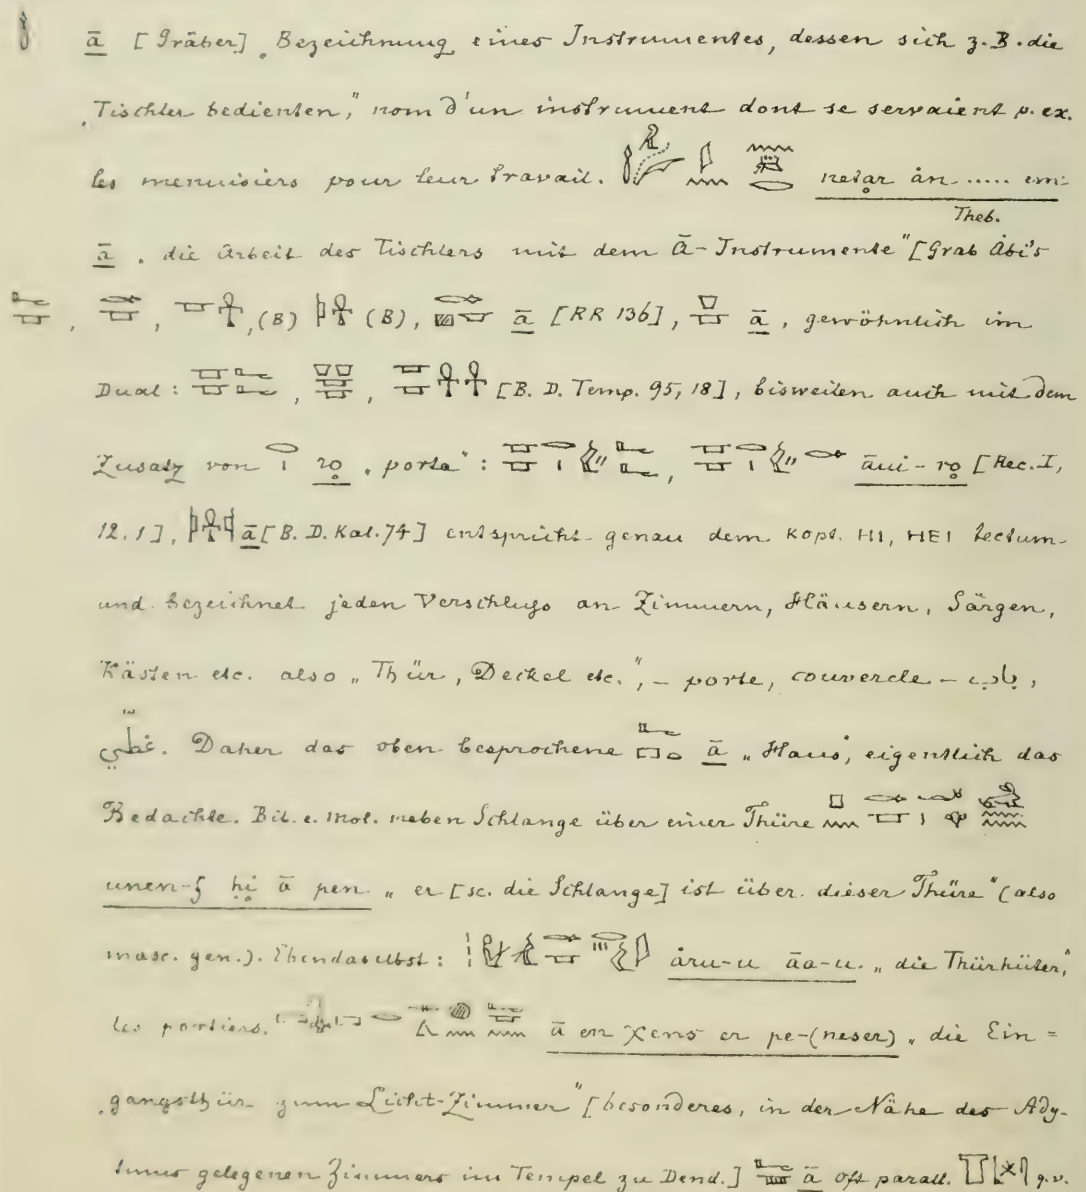 ā [Gräber] „Bezeichnung eines Instrumentes, dessen sich z. B. die
Tischler bedienten," nom d'un instrument dont se servaient p. ex.
les menuisiers pour leur travail. neṭar ȧn ..... em-
Theb.
ā „ die Arbeit des Tischlers mit dem Ā-Instrumente" [Grab Ȧbi's
, , , (B) (B), ā [RR 136], ā, gewöhnlich im
Dual: , , [B. D. Temp. 95, 18], bisweilen auch mit dem
Zusatz von ro „ porta": , āui-ro [Rec. I,
12. 1], ā [B. D. Kal. 74] entspricht genau dem kopt. ΗΙ, ΗΕΙ tectum
und bezeichnet jeden Verschluss an Zimmern, Häusern, Särgen,
Kästen etc. also „Thür, Deckel etc.", – porte, couvercle – باب,
غطّي. Daher das oben besprochene ā „Haus", eigentlich das
Bedachte. Bib. e. Mol. neben Schlange über einer Thüre
unen-f ḥi ā pen „ er [sc. die Schlange] ist über dieser Thüre" (also
masc. gen.). Ebendaselbst: ȧru-u āa-u. „die Thürhüter,"
les portiers. ā en χens er pe-(neser) „ die Ein=
gangsthür zum Licht-Zimmer" [besonderes, in der Nähe des Ady-
tums gelegenen Zimmers im Tempel zu Dend.] ā oft parall. q. v.